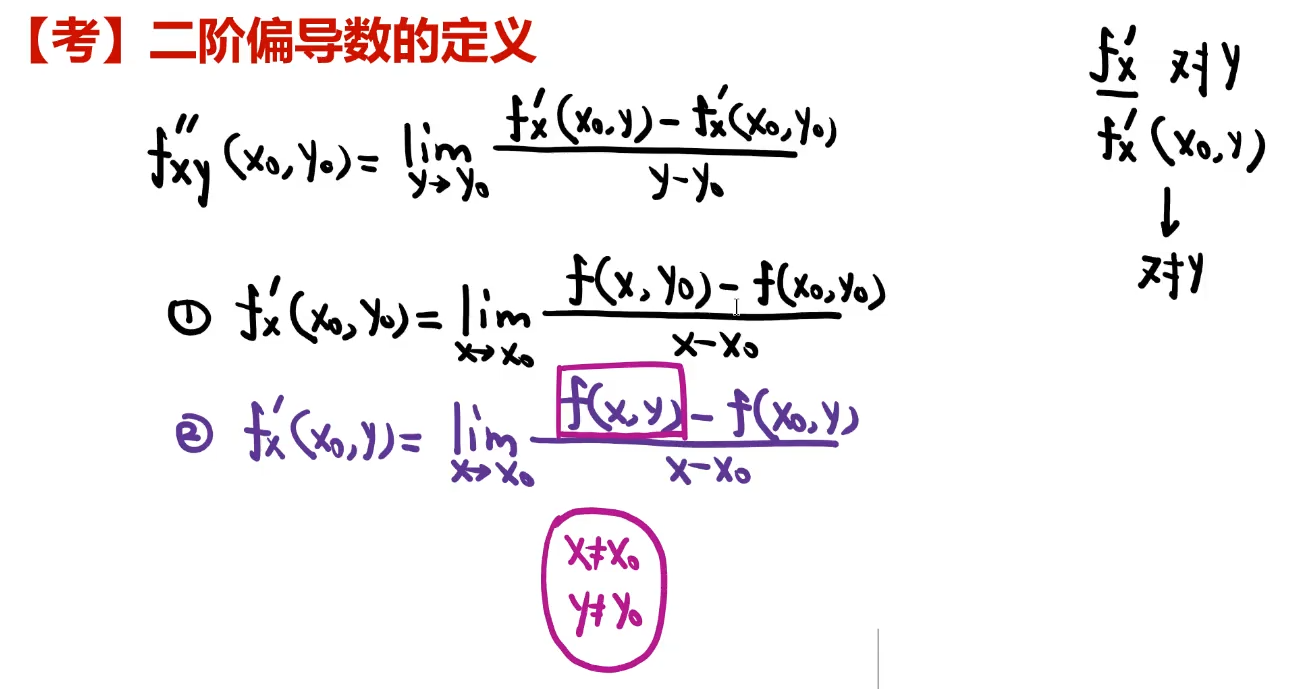 【考】二阶偏导数的定义
f''xy(x₀,y₀)= lim y→y₀ f'x(x₀,y)-f'x(x₀,y₀) / y-y₀
① f'x(x₀,y₀)= lim x→x₀ f(x,y₀)-f(x₀,y₀) / x-x₀
② f'x(x₀,y)= lim x→x₀ f(x,y)-f(x₀,y) / x-x₀
x≠x₀
y≠y₀
f'x
f'x(x₀,y)
↓